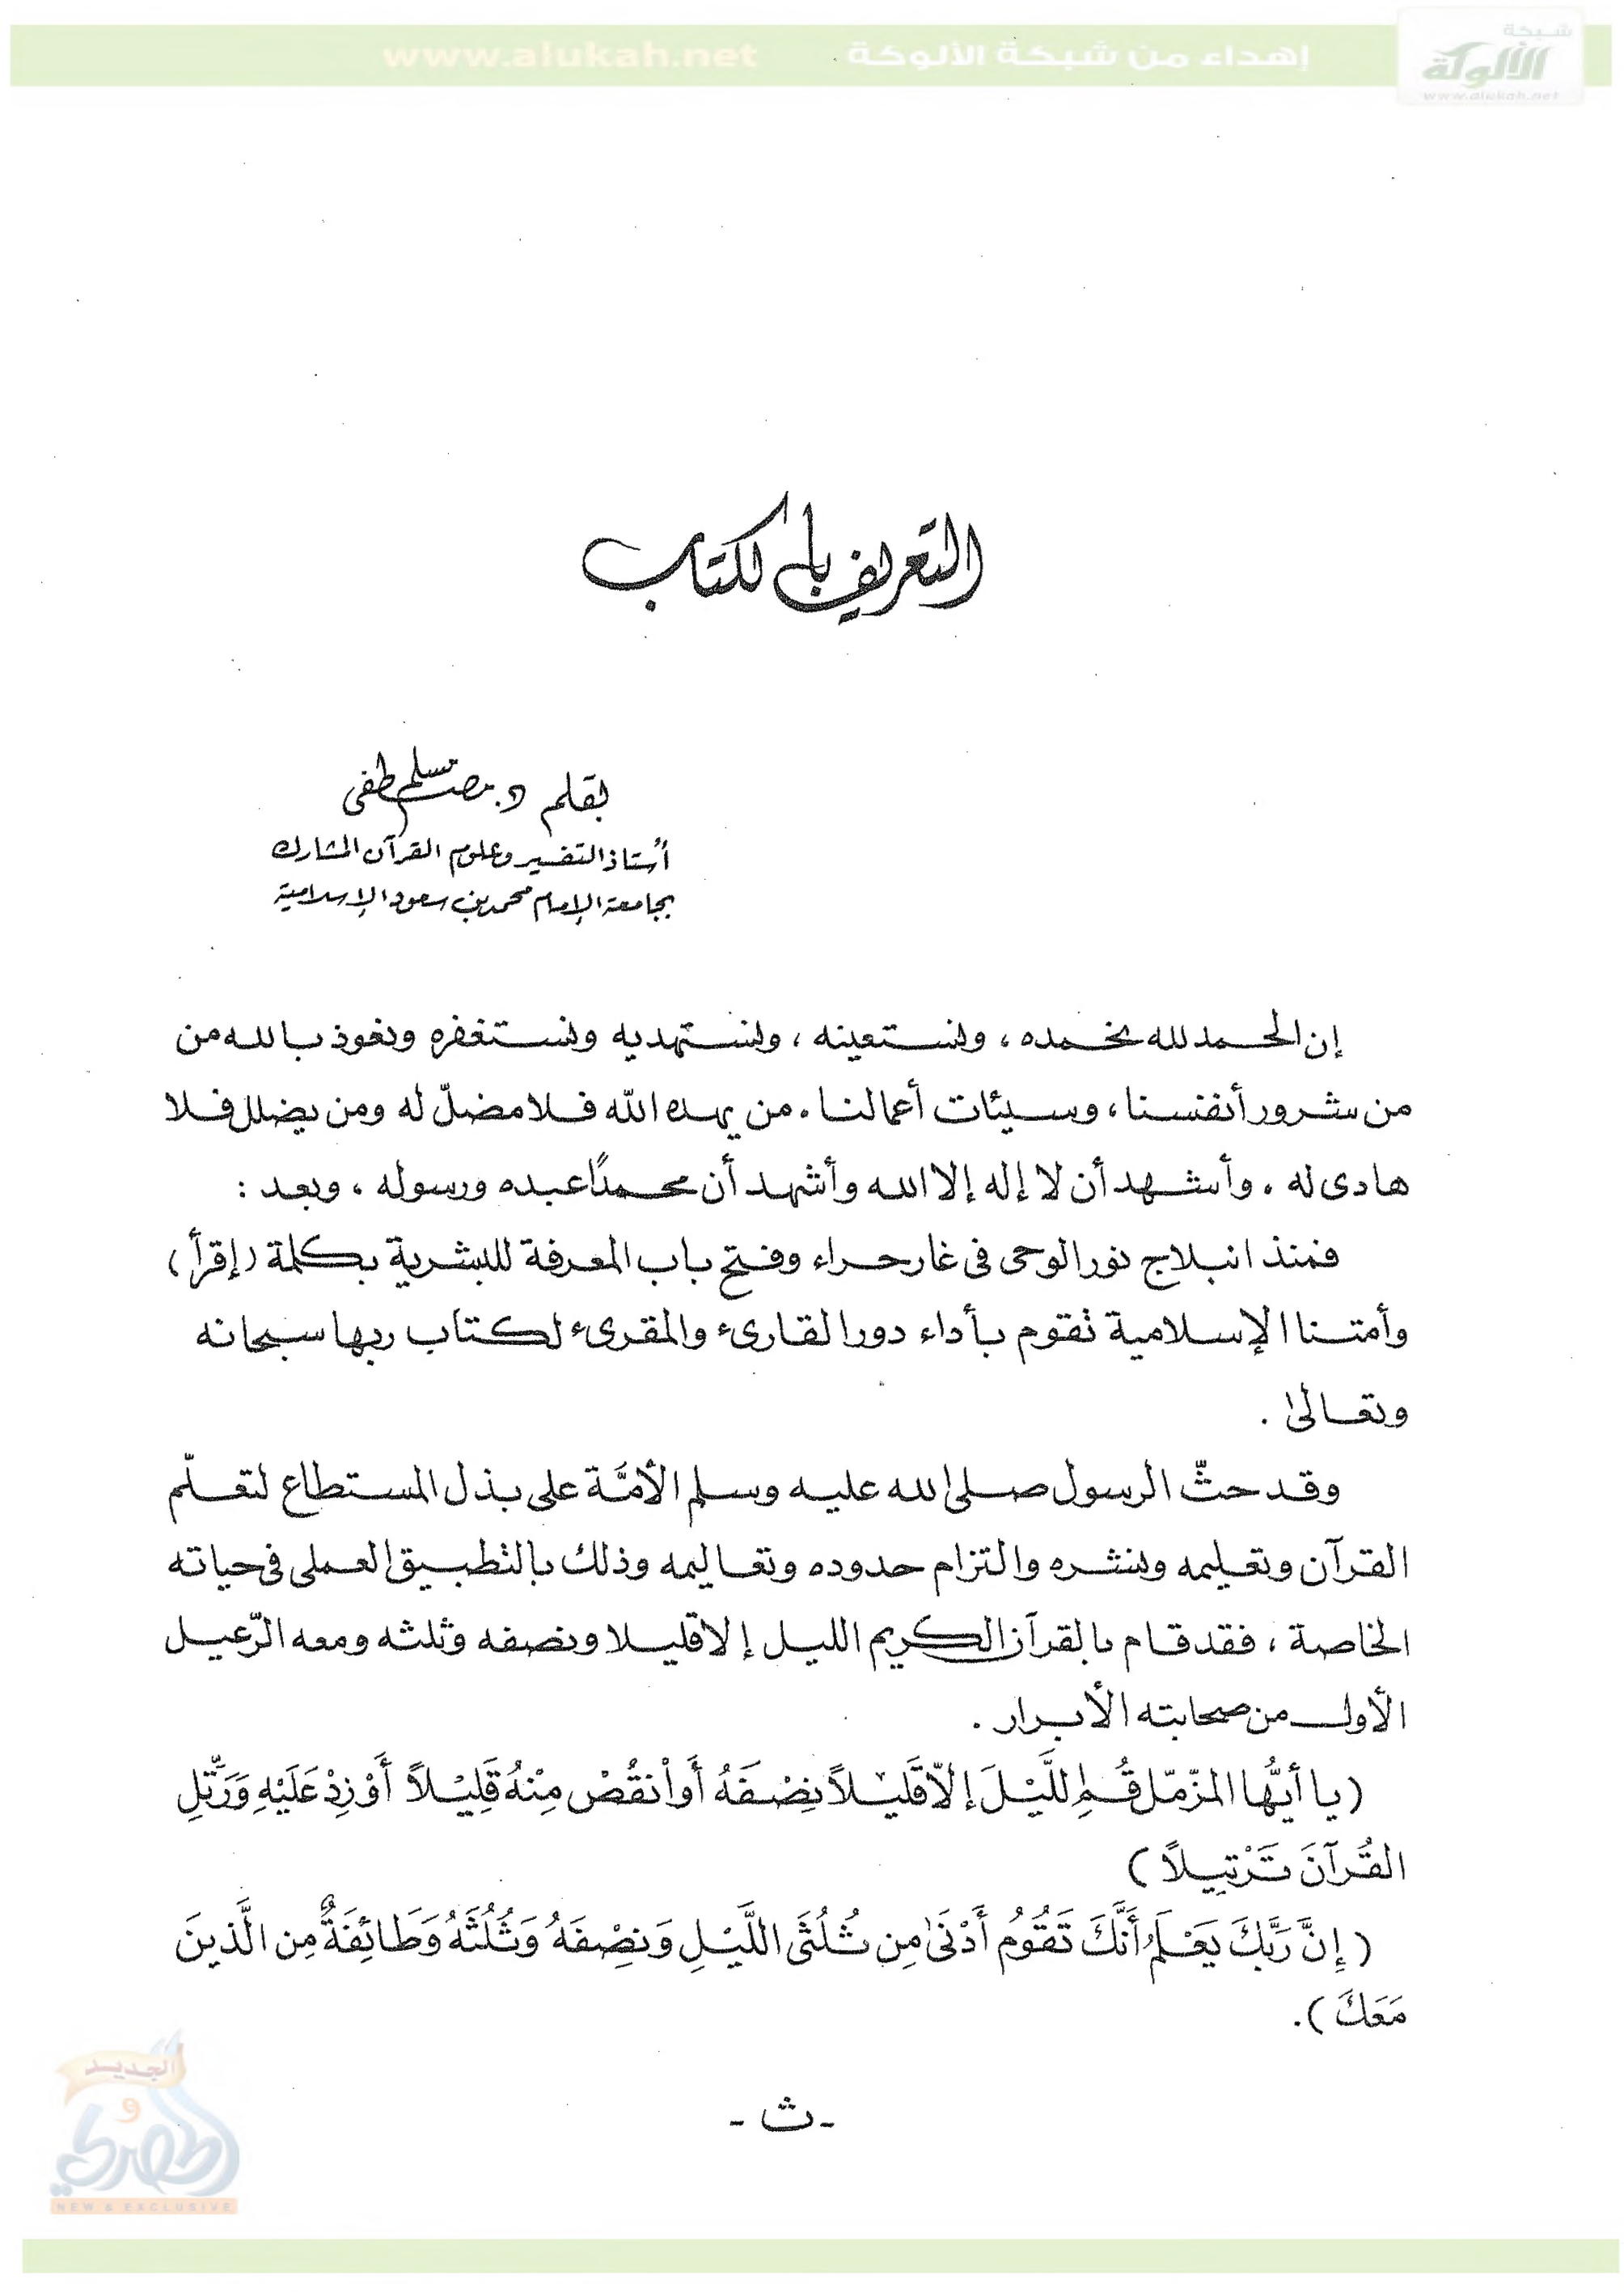 شبكة
الألوكة
www.alukah.net
إهداء من شبكة الألوكة
www.alukah.net
التعريف بالكتاب
بقلم د. مصطفى مسلم
أستاذ التفسير وعلوم القرآن المشارك
بجامعة الإمام محمد بن سعود الإسلامية
إن الحمد لله نحمده ، ونستعينه ، ونستهديه ونستغفره ونعوذ بالله من
من شرور أنفسنا ، وسيئات أعمالنا . من يهده الله فلا مضلّ له ومن يضلل فلا
هادى له . وأشهد أن لا إله إلا الله وأشهد أن محمدًا عبده ورسوله ، وبعد :
فمنذ انبلاج نور الوحى فى غار حراء وفتح باب المعرفة للبشرية بكلمة (إقرأ)
وأمتنا الإسلامية تقوم بأداء دور القارىء والمقرىء لكتاب ربها سبحانه
وتعالىٰ .
وقد حثّ الرسول صلى الله عليه وسلم الأمَّة على بذل المستطاع لتعلّم
القرآن وتعليمه ونشره والتزام حدوده وتعاليمه وذلك بالتطبيق العملى فى حياته
الخاصة ، فقد قام بالقرآن الكريم الليل إلا قليلا ونصفه وثلثه ومعه الرّعيل
الأول من صحابته الأبرار .
(يا أيُّها المزّمّل قُمِ اللَّيْلَ إلاّ قَليلاً نِصْفَهُ أَو اْنقُصْ مِنْهُ قَلِيْلاً أَوْ زِدْ عَلَيْهِ وَرَتّلِ
القُرآنَ تَرْتِيلاً)
(إِنَّ رَبَّكَ يَعْلَمُ أَنَّكَ تَقُومُ أَدْنَىٰ مِن ثُلُثَى اللَّيْلِ وَنِصْفَهُ وَثُلُثَهُ وَطَائِفَةٌ مِن الَّذينَ
مَعَكَ).
- ث -
الجديد
و
الحصري
NEW & EXCLUSIVE